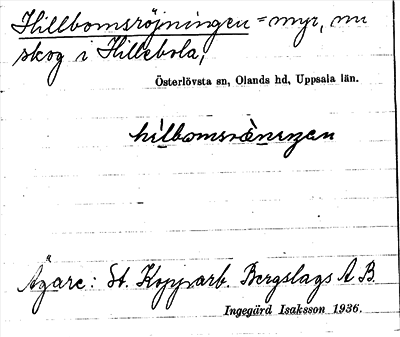 Hillbomsröjningen = myr, nu
skog i Hillebola,
Österlövsta sn, Olands hd, Uppsala län.
hìlbomsrǿ̀nıŋan
Ägare: St. Kopparb. Bergslags A B.
Ingegärd Isaksson 1936.